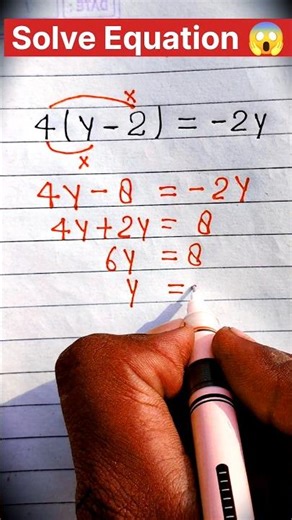 Solve Equation 😱
x
4(y-2) = -2y
x
4y-8 = -2y
4y+2y = 8
6y = 8
y =